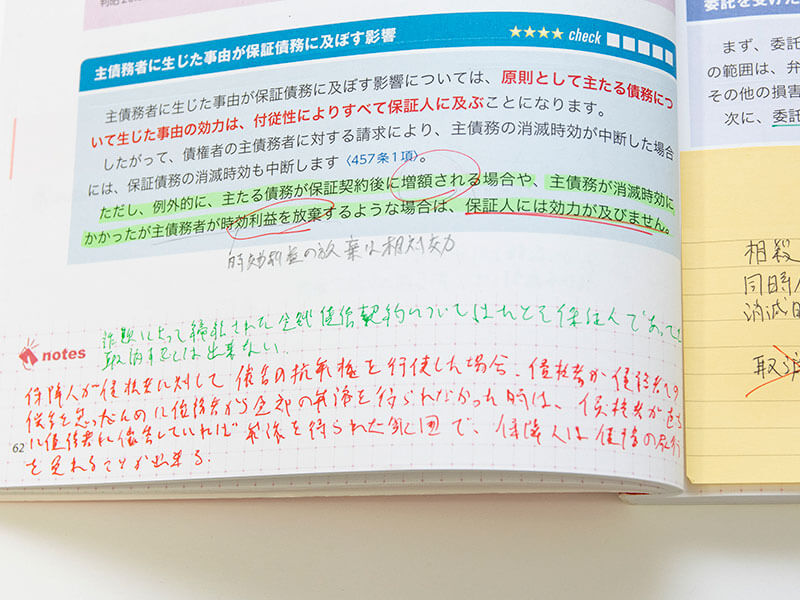 主債務者に生じた事由が保証債務に及ぼす影響
★★★★ check
主債務者に生じた事由が保証債務に及ぼす影響については、原則として主たる債務につ
いて生じた事由の効力は、付従性によりすべて保証人に及ぶことになります。
したがって、債権者の主債務者に対する請求により、主債務の消滅時効が中断した場合
には、保証債務の消滅時効も中断します〈457条1項〉。
ただし、例外的に、主たる債務が保証契約後に増額される場合や、主債務が消滅時効に
かかったが主債務者が時効利益を放棄するような場合は、保証人には効力が及びません。
時効利益の放棄は相対効力
詐欺によって締結された金銭債務契約についてはたとえ保証人であっても
取消すことは出来ない。
notes
保障人が債権者に対して催告の抗弁権を行使した場合、債権者が債務者への
催告を怠ったために債務者から全部の弁済を得られなかった時は、債権者が直ち
に債務者に催告していれば弁済を得られた範囲で、保障人は債務の
を免れることが出来る。
62
委託を受けた
まず、委託
の範囲は、弁
その他の損害
次に、委託
相殺
同時
消滅
取消